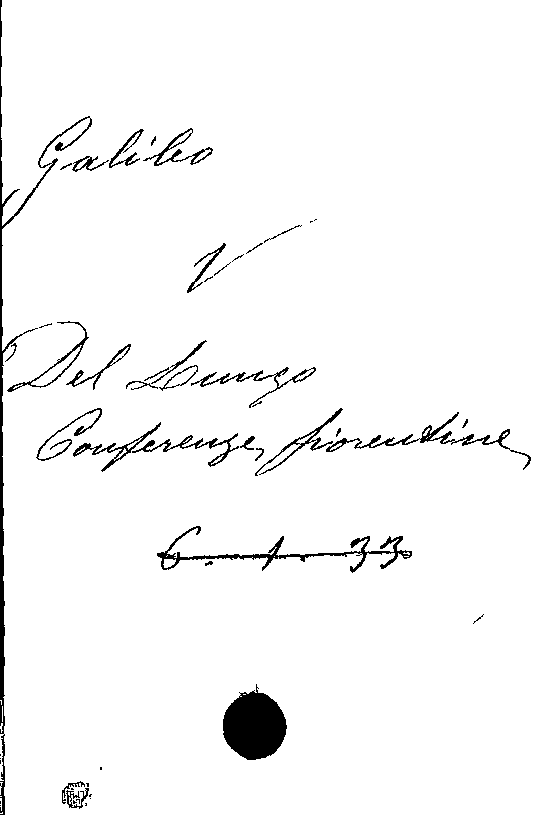 Galileo
V
Del Lungo
Conferenze fiorentine
6. 1. 33